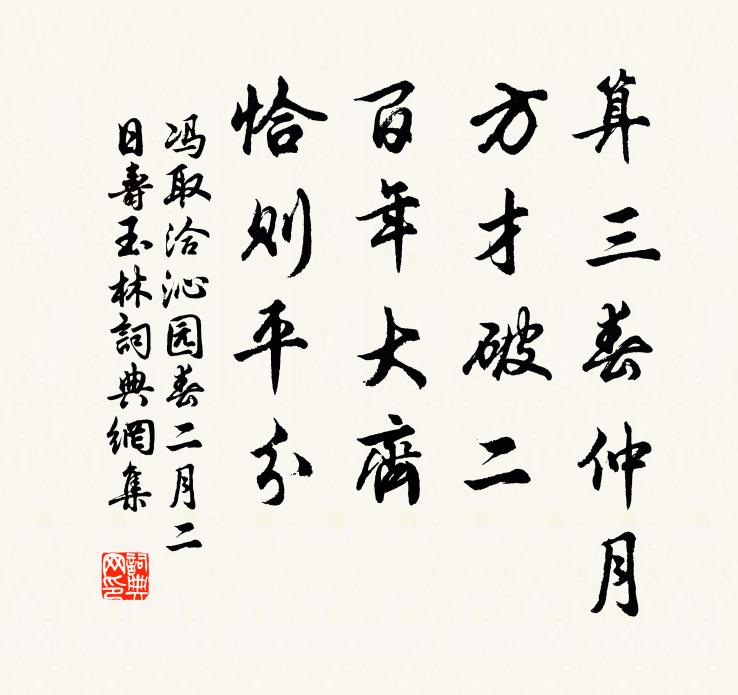 算三春仲月
方才破二
百年大齊
恰则平分
冯取洽沁园春二月二
日壽玉林詞典網集
詞典
网印